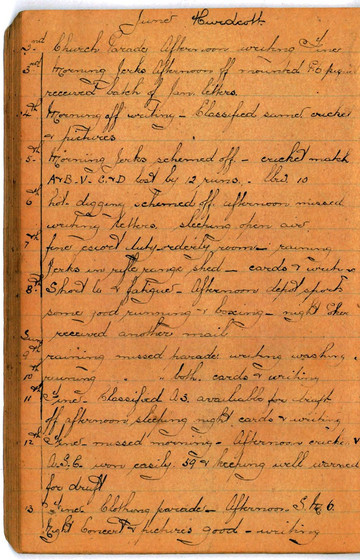 June Hurdcott
2nd Church Parade Afternoon writing Fine
3rd Morning Jerks Afternoon off mounted Gd
received batch of Fam letters.
4th Morning off writing - Classified same cricket
& pictures
5th Morning Jerks, schemed off - cricket match
A & B. V. C & D lost by 12 runs. 10
6th hot digging schemed off afternoon missed
writing letters. sleeping open air
7th fine escort duty orderly room - raining
Jerks in rifle range shed - cards & writing
8th Short to 2 fatigue - Afternoon depot sports
some good running & boxing - night
received another mail
9th raining missed parade writing washing
10th raining . . . both. cards & writing
11th Fine - Classified A3. available for draft
off afternoon sleeping night cards & writing
12th Fine - missed morning - Afternoon cricket V
A.S.C. won easily 59 & keeping well warned
for draft
3 Fine Clothing parade - Afternoon
Night Concert & pictures good - writing